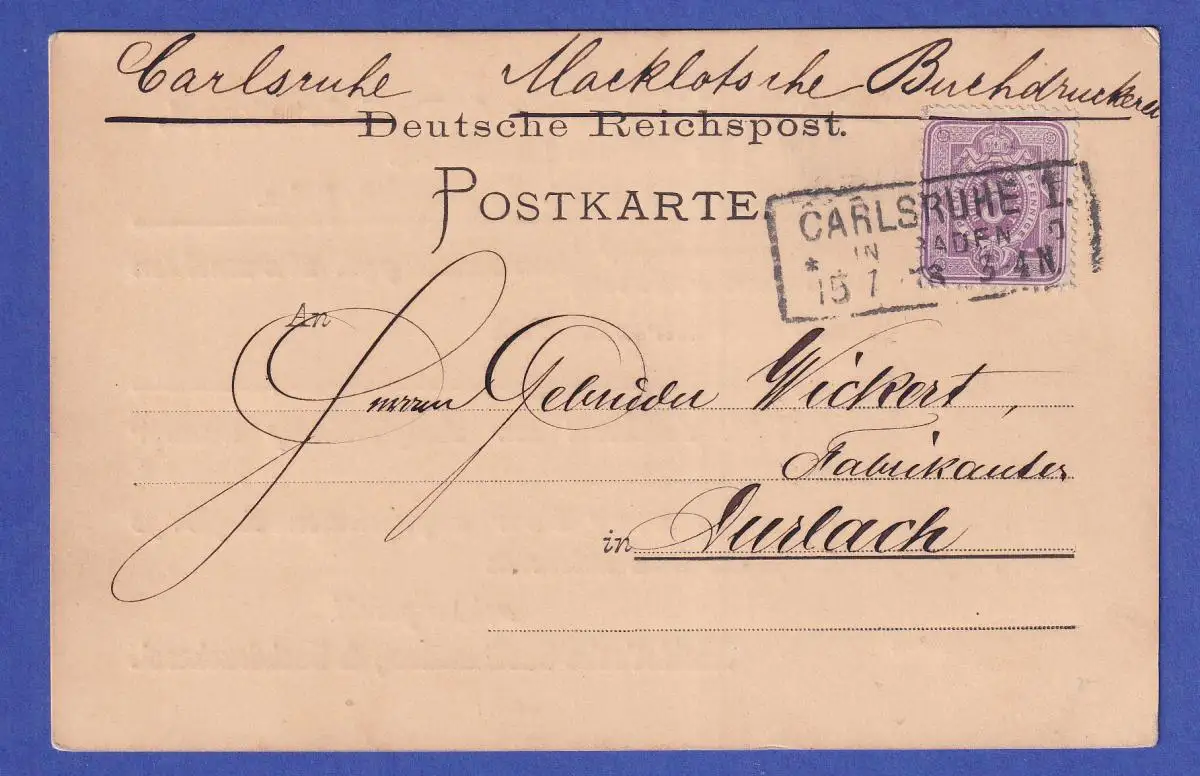 Carlsruhe Macklotsche Buchdruckerei
Deutsche Reichspost.
POSTKARTE
PFENNIGE
CARLSRUHE 1.
IN BADEN
15 7 3-4 N
An
Herren Gebrüder Wickert,
Fabrikanten
in Durlach